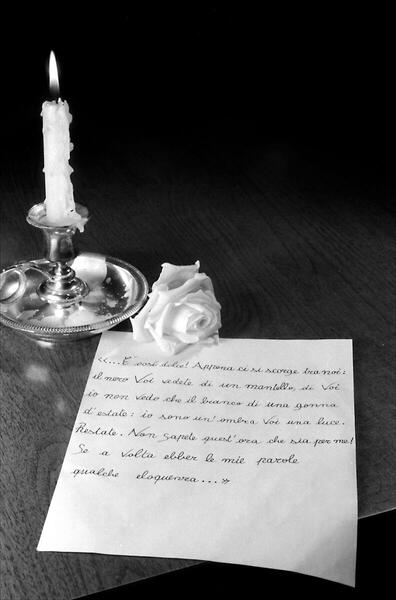 «...È così dolce! Appena ci si scorge tra noi:
il nero Voi vedete di un mantello, di Voi
io non vedo che il bianco di una gonna
d'estate: io sono un'ombra Voi una luce.
Restate. Non sapete quest'ora che sia per me!
Se a volta ebber le mie parole
qualche eloquenza...»